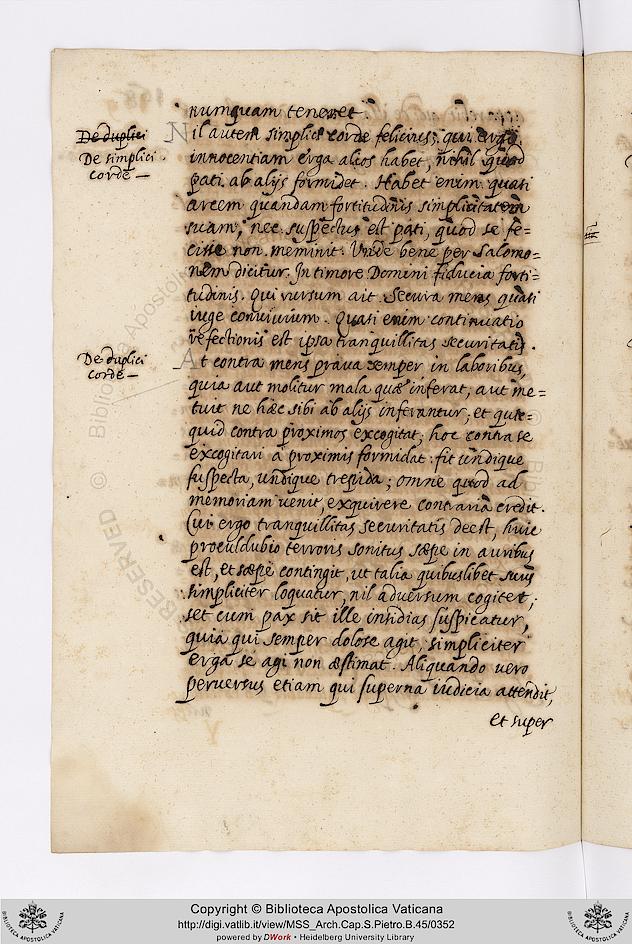 numquam teneret
De duplici
De simplici
corde —
Nil autem simplici corde felicius, qui ergo
innocentiam erga alios habet, nihil quod
pati ab alijs formidet. Habet enim quasi
arcem quandam fortitudinis simplicitatem
suam, nec suspectus est pati, quod se fe=
cisse non meminit. Unde bene per Salomo=
nem dicitur. In timore Domini fiducia forti=
tudinis. Qui rursum ait. Secura mens quasi
iuge convivium. Quasi enim continuatio
refectionis est ipsa tranquillitas securitatis.
De duplici
corde —
At contra mens prava semper in laboribus,
quia aut molitur mala quæ inferat, aut me=
tuit ne hæc sibi ab alijs inferantur, et quic=
quid contra proximos excogitat, hoc contra se
excogitari a proximis formidat: fit undique
suspecta, undique trepida; omne quod ad
memoriam venit, exquirere contraria credit.
Cui ergo tranquillitas securitatis deest, huic
proculdubio terroris sonitus sæpe in auribus
est, et sæpe contingit, ut talia quibuslibet suus
simpliciter loquatur, nil adversum cogitet;
set cum pax sit ille insidias suspicatur,
quia qui semper dolose agit, simpliciter
erga se agi non æstimat. Aliquando vero
perversus etiam qui superna iudicia attendit,
et super
© Biblioteca Apostolica
RESERVED ©
Copyright © Biblioteca Apostolica Vaticana
http://digi.vatlib.it/view/MSS_Arch.Cap.S.Pietro.B.45/0352
powered by DWork • Heidelberg University Library